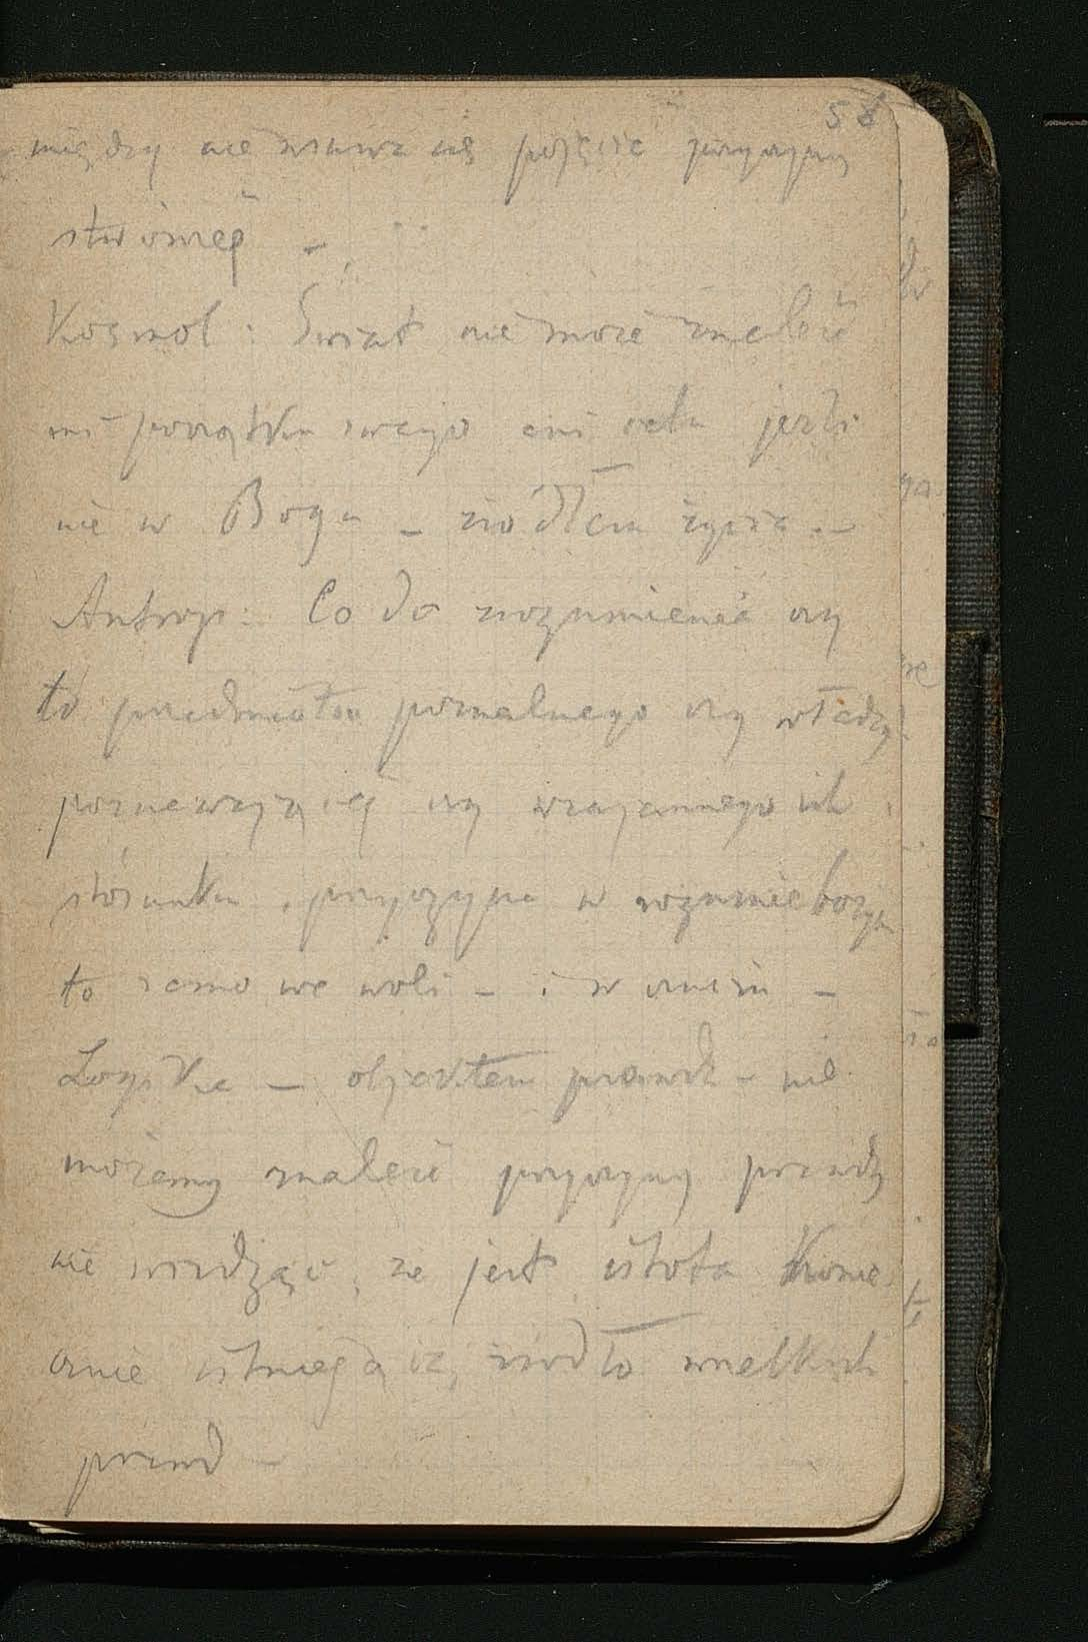 58
między nie wsuwa się pojęcie przyczyny
stwórczej –
Kosmol: Świat nie może znaleść
ani początku swego ani celu jeżli
nie w Bogu – źródłem życia. –
Antrop: Co do rozumienia czy
to przedmiotu poznalnego czy władzy
poznawającej czy wzajemnego ich
stosunku, przyczyna w rozumie bożym
to samo we woli – i w
Logika – objektem prawda – nie
możemy znaleść przyczyny prawdy
nie wiedząc, że jest istota konie
cznie istniejąca, źródło wszelkich
prawd –